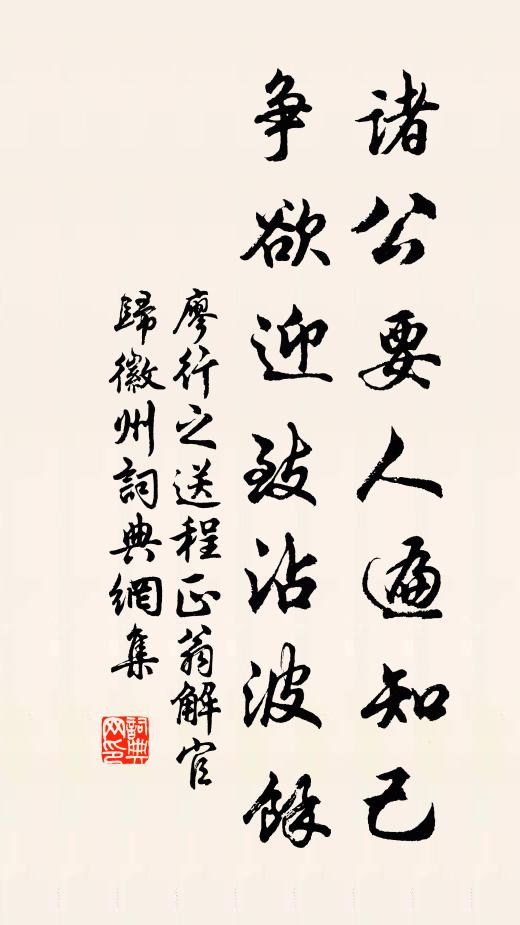 诸公要人遍知己
争欲迎致沾波馀
廖行之送程正翁解官
歸徽州詞典網集
詞典网印